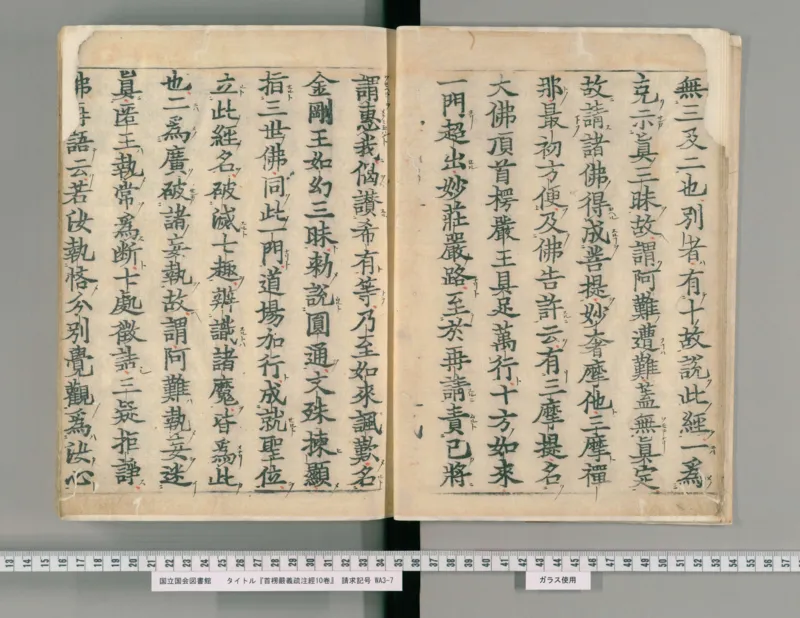 無三及二也別者有十故說此經一爲
克示眞三昧故謂阿難遭難蓋無眞定
故請諸佛得成菩提妙奢摩他三摩禪
那最初方便及佛告許云有三摩提名
大佛頂首楞嚴王具足萬行十方如來
一門超出妙莊嚴路至於再請責已將
謂惠我偈讃希有等乃至如來諷歎名
金剛王如幻三昧勑說圓通文殊揀顯
指三世佛同此一門道場加行成就聖位
立此經名破滅七趣辨識諸魔皆爲此
也二爲廣破諸妄執故謂阿難執妄迷
眞匿王執常爲斷七處徵詰三疑拒諍
佛語云若汝執悋分別覺觀爲決心
国立国会図書館 タイトル『首楞嚴義疏注經10巻』 請求記号 WA3-7
ガラス使用